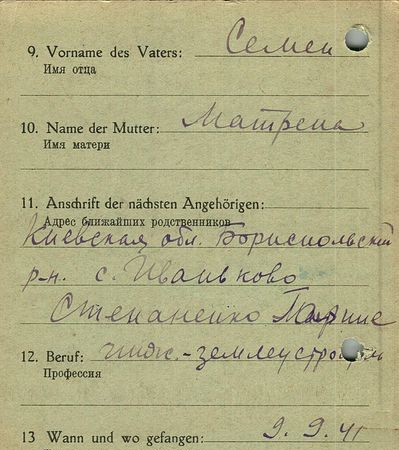 9. Vorname des Vaters: Семен
Имя отца
10. Name der Mutter: Матрена
Имя матери
11. Anschrift der nächsten Angehörigen:
Адрес ближайших родственников
Киевская обл. Бориспольский
р-н. с. Иваньково
Степаненко
12. Beruf: инж.-землеустроитель
Профессия
13 Wann und wo gefangen: 9. 9. 41